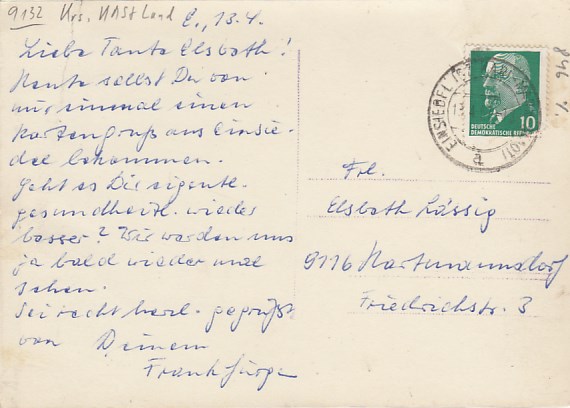 9132 Krs. KASt Land
E., 13.4.
Liebe Tante Elsbeth!
Heute sollst Du von
mir einmal einen
Kartengruß aus Einsie-
del bekommen.
Geht es Dir eigentl.
gesundheitl. wieder
besser? Wir werden uns
ja bald wieder mal
sehen.
Sei recht herzl. gegrüßt
von Deinem
Frank-Jürgen
846 V.
EINSIEDEL
10
DEUTSCHE
DEMOKRATISCHE
a
Frl.
Elsbeth Lässig
9116 Hartmannsdorf
Friedrichstr. 3